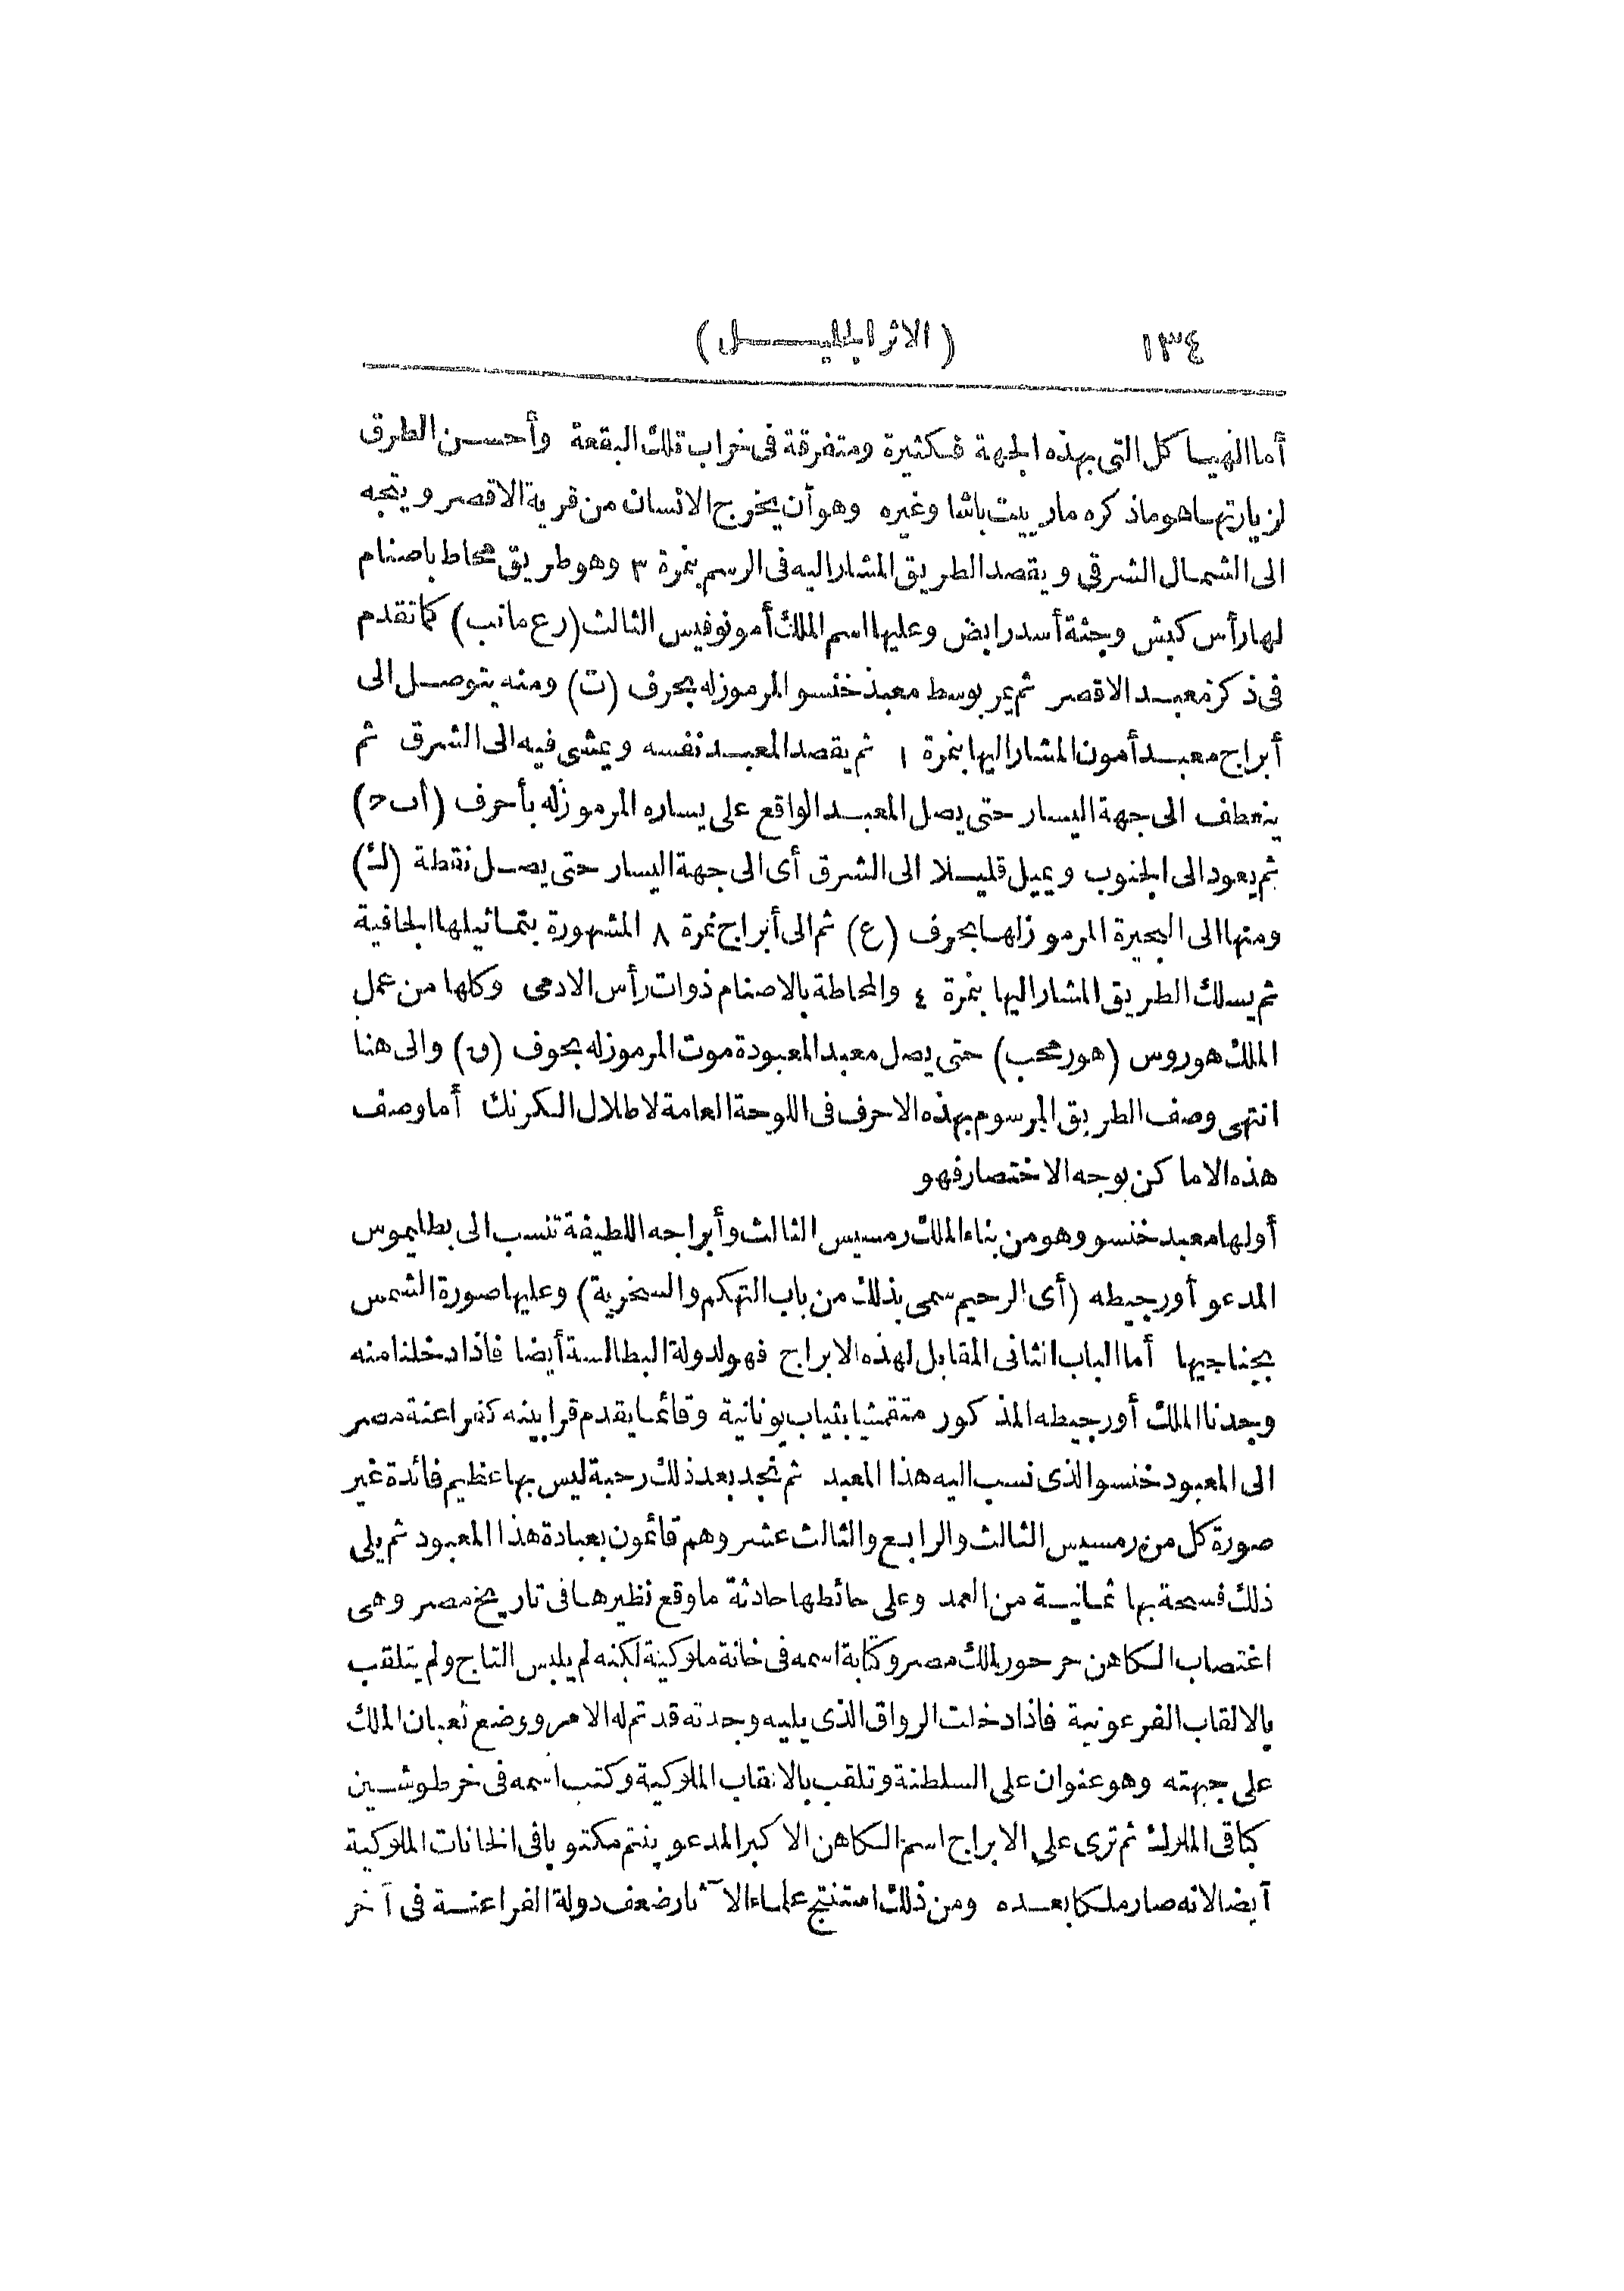 ١٣٤ (الاثر الجليـــــل)
أما الهيا كل التى بهذه الجهة فكثيرة ومتفرقة فى خراب تلك البقعة وأحسن الطرق
لزيارتها هو ماذكره مارييت باشا وغيره وهو أن يخرج الانسان من قرية الاقصر ويتجه
الى الشمال الشرقى ويقصد الطريق المشار اليه فى الرسم بنمرة ٣ وهو طريق محاط باصنام
لها رأس كبش وجثة أسد رابض وعليها اسم الملك أمونوفيس الثالث (رع مانب) كما تقدم
فى ذكر معبد الاقصر ثم يمر بوسط معبد خنسو المرموز له بحرف (ت) ومنه يتوصل الى
أبراج معبد أمون المشار اليها بنمرة ١ ثم يقصد المعبد نفسه ويمشى فيه الى الشرق ثم
ينعطف الى جهة اليسار حتى يصل المعبد الواقع على يساره المرموز له بأحرف (أ ب ح)
ثم يعود الى الجنوب ويميل قليلا الى الشرق أى الى جهة اليسار حتى يصل نقطة (ك)
ومنها الى البحيرة المرموز لها بحرف (ع) ثم الى أبراج نمرة ٨ المشهورة بتماثيلها الجافية
ثم يسلك الطريق المشار اليها بنمرة ٤ والمحاطة بالاصنام ذوات رأس الادمى وكلها من عمل
الملك هوروس (هور محب) حتى يصل معبد المعبودة موت المرموز له بحرف (ق) والى هنا
انتهى وصف الطريق المرسوم بهذه الاحرف فى اللوحة العامة لاطلال الكرنك أما وصف
هذه الاماكن بوجه الاختصار فهو
أولها معبد خنسو وهو من بناء الملك رمسيس الثالث وأبراجه اللطيفة تنسب الى بطليموس
المدعو أورجيطه (أى الرحيم سمى بذلك من باب التهكم والسخرية) وعليها صورة الشمس
بجناحيها أما الباب الثانى المقابل لهذه الابراج فهو لدولة البطالسة أيضا فاذا دخلنا منه
وجدنا الملك أورجيطه المذكور متقمصا بثياب يونانية وقائما يقدم قرابينه كفراعنة مصر
الى المعبود خنسو الذى نسب اليه هذا المعبد ثم نجد بعد ذلك رحبة ليس بها عظيم فائدة غير
صورة كل من رمسيس الثالث والرابع والثالث عشر وهم قائمون بعبادة هذا المعبود ثم يلى
ذلك فسحة بها ثمانية من العمد وعلى حائطها حادثة ما وقع نظيرها فى تاريخ مصر وهى
اغتصاب الكاهن حرحور بملك مصر وكتابة اسمه فى خانة ملوكية لكنه لم يلبس التاج ولم يتلقب
بالالقاب الفرعونية فاذا دخلت الرواق الذى يليه وجدته قد تم له الامر ووضع ثعبان الملك
على جبهته وهو عنوان على السلطنة وتلقب بالالقاب الملوكية وكتب اسمه فى خرطوشين
كباقى الملوك ثم ترى على الابراج اسم الكاهن الاكبر المدعو ينتم مكتوبا فى الخانات الملوكية
أيضا لانه صار ملكا بعده ومن ذلك استنتج علماء الآثار ضعف دولة الفراعنة فى آخر